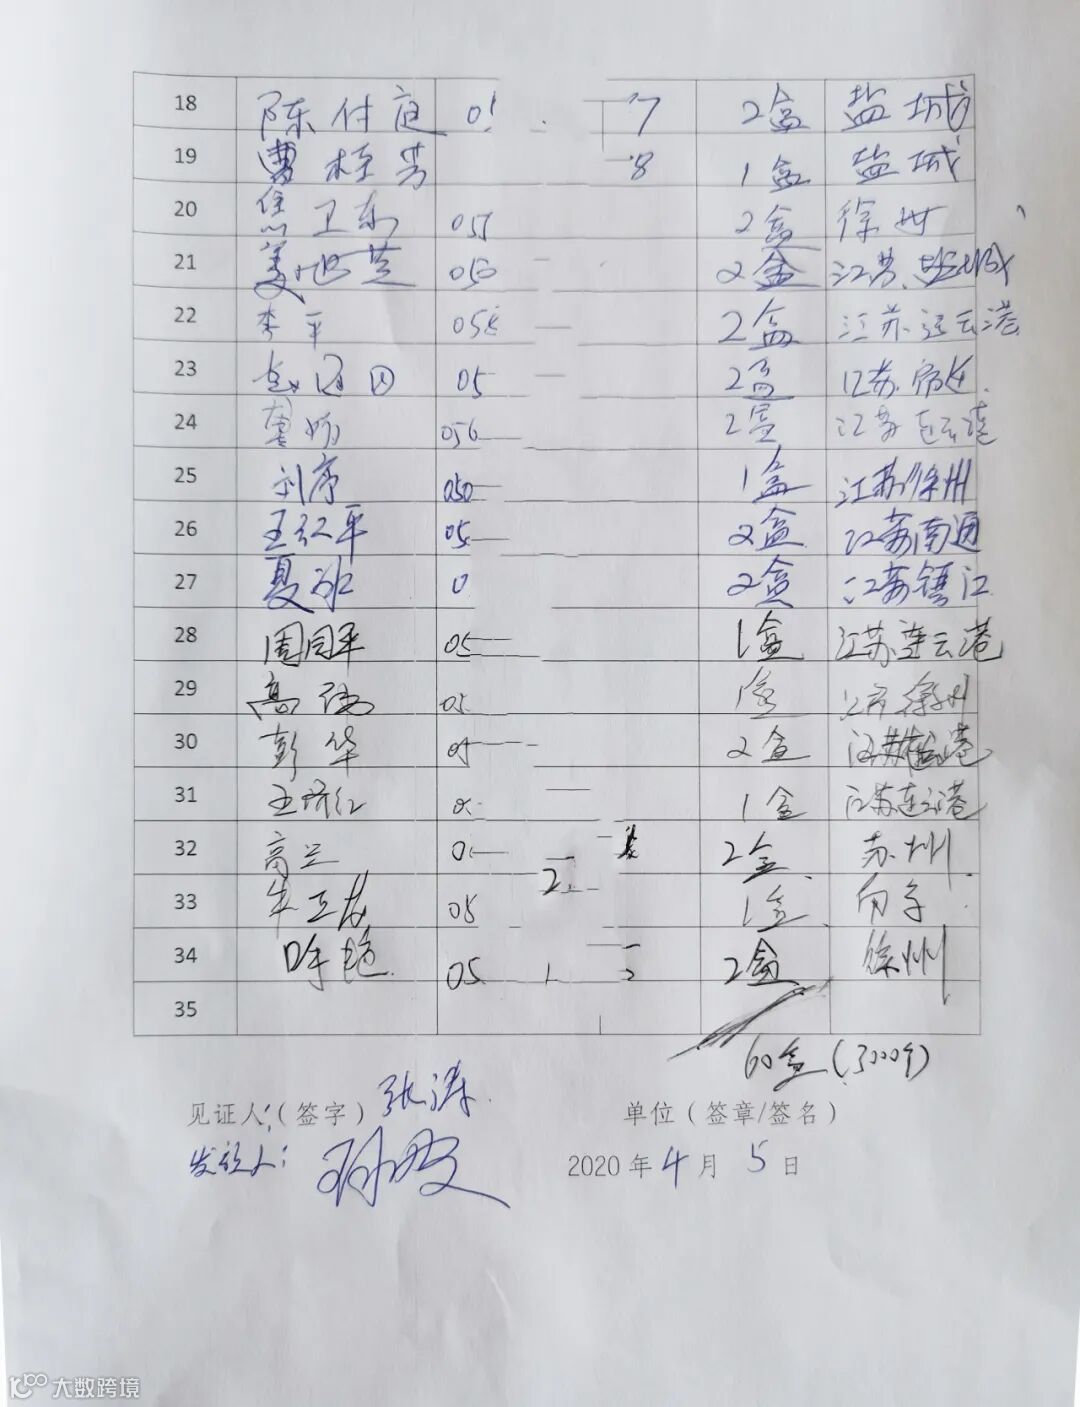 18 陈付庭 05 7 2盒 盐城
19 曹桂芳 8 1盒 盐城
20 焦卫东 055 2盒 徐州
21 姜旭芝 050 2盒 江苏.盐城
22 李平 055 2盒 江苏连云港
23 05 2盒 江苏.宿迁.
24 056 2盒 江苏连云港
25 刘序 050 1盒 江苏徐州
26 王红平 05 2盒 江苏南通
27 夏冰 0 2盒 江苏镇江
28 周同平 05 1盒 江苏连云港
29 高强 05 1盒 徐州
30 彭华 05 2盒
31 1盒 江苏连云港
32 高兰 0 2盒 苏州
33 朱卫 05 2 1盒 句容
34 叶艳 05 1 2 2盒 徐州
35
60盒(3000个)
见证人:(签字) 张涛 单位(签章/签名)
发放人: 孙 2020年4月5日
大数跨境